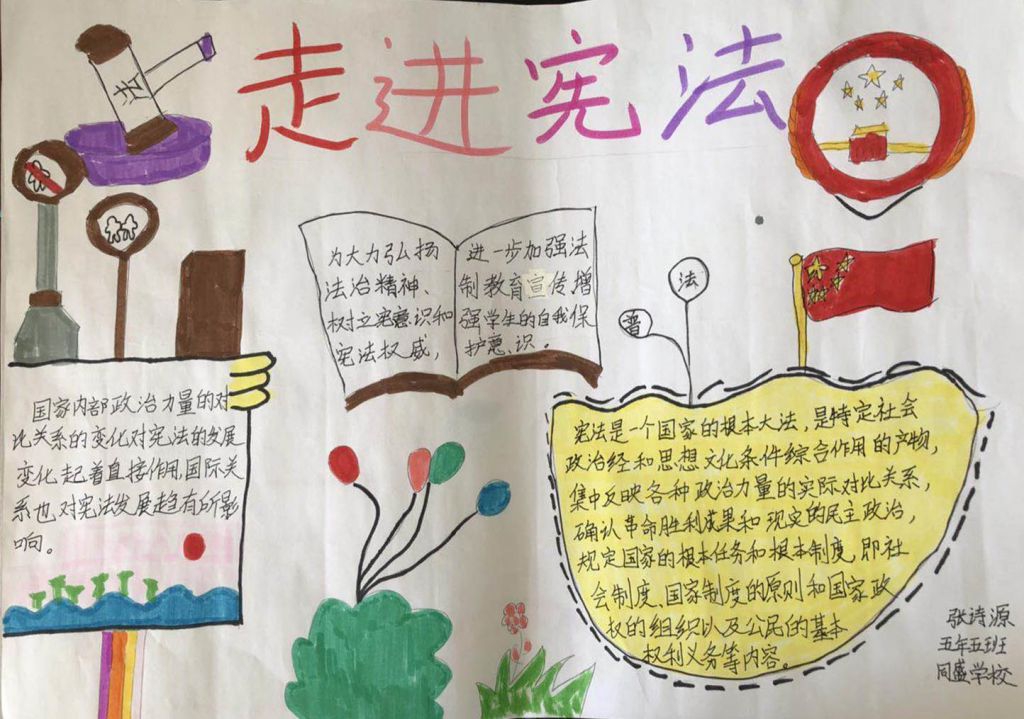 走进宪法
法
为大力弘扬
法治精神、
树立宪意识和
宪法权威，
进一步加强法
制教育宣传增
强学生的自我保
护意识。
法
普
国家内部政治力量的对
比关系的变化对宪法的发展
变化起着直接作用国际关
系也对宪法发展趋有所影
响。
宪法是一个国家的根本大法，是特定社会
政治经和思想文化条件综合作用的产物，
集中反映各种政治力量的实际对比关系，
确认革命胜利成果和现实的民主政治，
规定国家的根本任务和根本制度，即社
会制度、国家制度的原则和国家政
权的组织以及公民的基本
权利义务等内容。
张诗源
五年五班
同盛学校